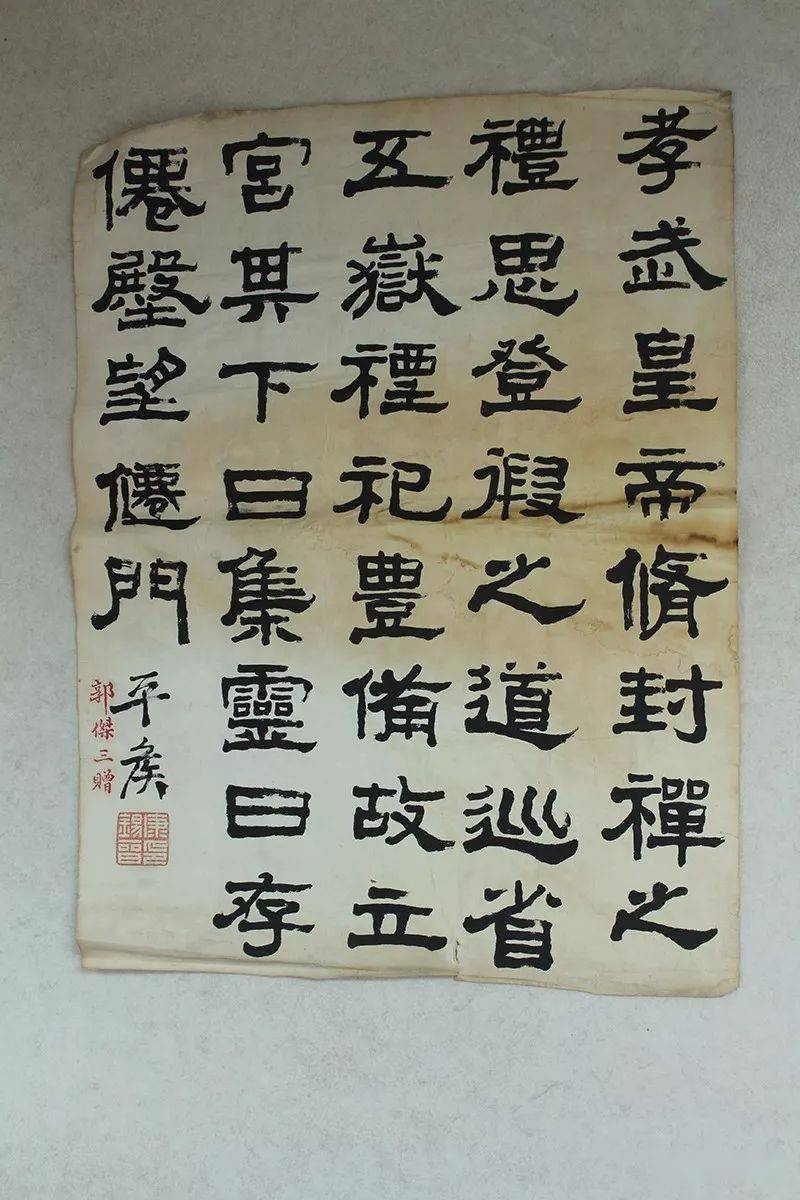 孝武皇帝脩封禪之
禮思登徦之道巡省
五嶽禋祀豐備故立
宮其下曰集靈曰存
僊壂望僊門
平矦
郭傑三贈